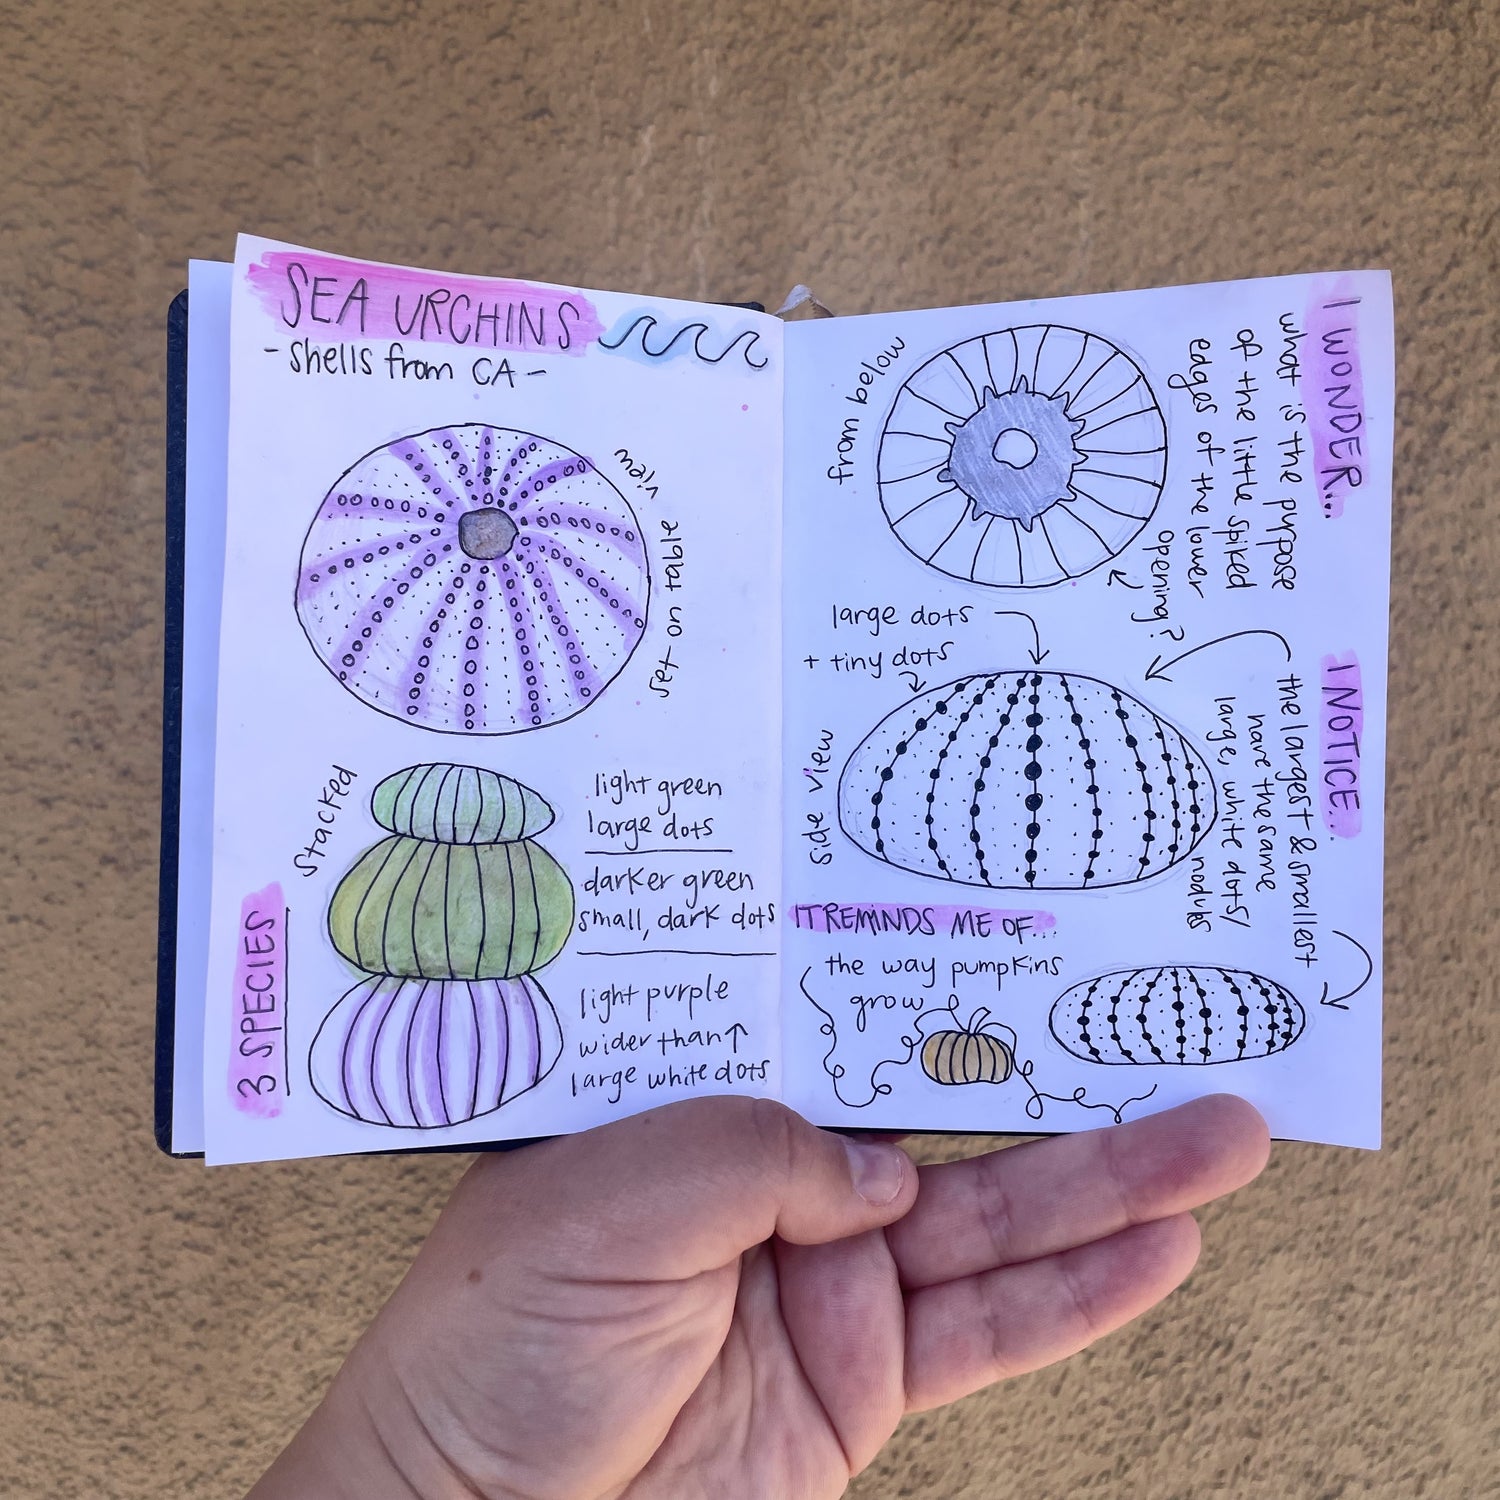 SEA URCHINS
- shells from CA -
main view
set on table
stacked
light green
large dots
darker green
small, dark dots
light purple
wider than ↑
large white dots
3 SPECIES
from below
I WONDER...
what is the purpose
of the little spiked
edges of the lower
opening?
large dots
+ tiny dots
side view
I NOTICE...
the largest & smallest
have the same
large, white dots/
IT REMINDS ME OF...
the way pumpkins
grow